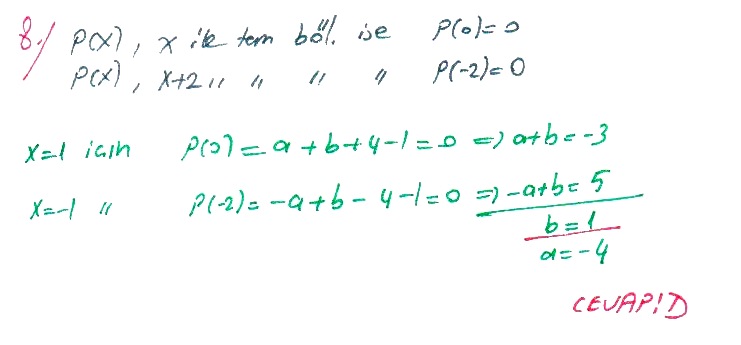 8-) P(x), x ile tam böl. ise P(0)=0
P(x), x+2 " " " " P(-2)=0
x=1 için P(0)=a+b+4-1=0 => a+b=-3
x=-1 " P(-2)=-a+b-4-1=0 => -a+b=5
b=1
a=-4
CEVAP:D